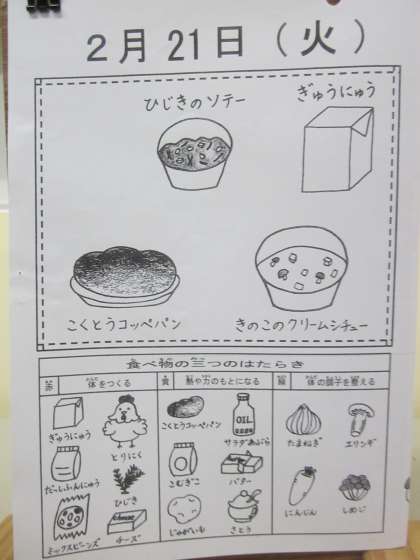 2月21日(火)
ひじきのソテー
ぎゅうにゅう
こくとうコッペパン
きのこのクリームシチュー
食べ物の三つのはたらき
赤 体をつくる
黄 熱や力のもとになる
緑 体の調子を整える
ぎゅうにゅう
とりにく
だっしふんにゅう
ひじき
ミックスビーンズ
cheese
チーズ
こくとうコッペパン
OIL
サラダあぶら
こむぎこ
バター
じゃがいも
さとう
たまねぎ
エリンギ
にんじん
しめじ